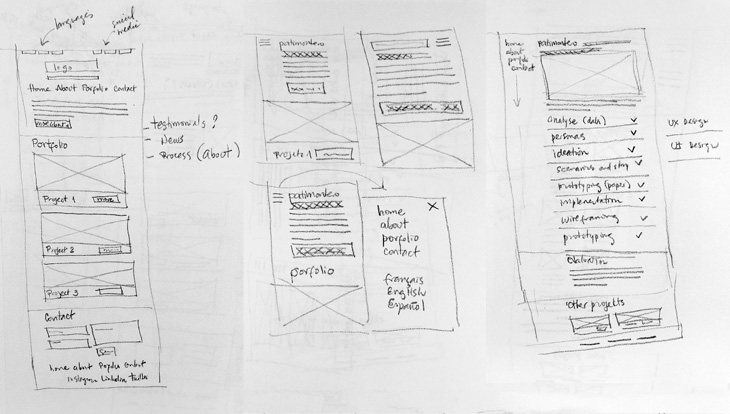 languages
social media
logo
Home About Porfolio Contact
Portfolio
Project 1
Project 2
Project 3
Contact
home about Porfolio Contact
Instagram Linkedin Twitter
- testimonials?
- News
- Process (About)
patimontero
Project 1
patimontero
porfolio
X
home
about
porfolio
contact
français
English
Español
home
about
porfolio
contact
patimontero
analyse (data)
personas
ideation
scenarios and story
prototyping (paper)
implementation
wireframing
prototyping
UX Design
UI Design
Other projects